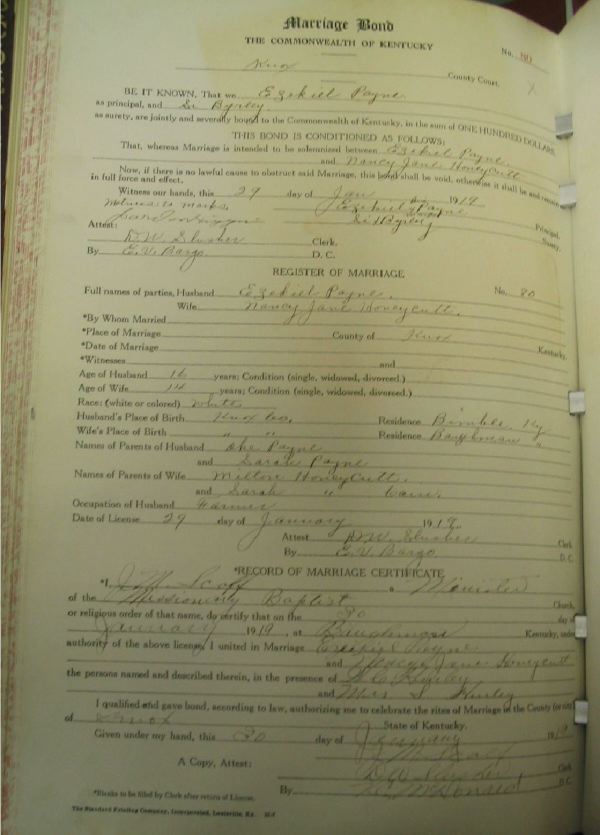 Marriage Bond
THE COMMONWEALTH OF KENTUCKY
No. 80
Knox County Court.
BE IT KNOWN, That we Ezekiel Payne
as principal, and Si Byrley
as surety, are jointly and severally bound to the Commonwealth of Kentucky, in the sum of ONE HUNDRED DOLLARS.
THIS BOND IS CONDITIONED AS FOLLOWS:
That, whereas Marriage is intended to be solemnized between Ezekiel Payne
and Nancy Jane Honeycutt
Now, if there is no lawful cause to obstruct said Marriage, this bond shall be void, otherwise it shall be and remain
in full force and effect.
Witness our hands, this 29 day of Jan 1919
Witness to marks. Ezekiel Payne Principal.
Si Byrley Surety.
Attest:
D.W. Slusher Clerk.
By E.V. Bargo D. C.
REGISTER OF MARRIAGE
Full names of parties, Husband Ezekiel Payne. No. 80
Wife Nancy Jane Honeycutt.
*By Whom Married
*Place of Marriage County of Knox Kentucky.
*Date of Marriage
*Witnesses and
Age of Husband 16 years; Condition (single, widowed, divorced.)
Age of Wife 14 years; Condition (single, widowed, divorced.)
Race: (white or colored) White
Husband's Place of Birth Knox Co. Residence Bimble, Ky.
Wife's Place of Birth " " Residence Baughman "
Names of Parents of Husband Payne
and Sarah Payne
Names of Parents of Wife Milton Honeycutt.
and Sarah "
Occupation of Husband Farmer
Date of License 29 day of January 1919.
Attest D.W. Slusher Clerk
By E.V. Bargo D. C.
*RECORD OF MARRIAGE CERTIFICATE
*I, J.M. Scalf a Minister
of the Missionary Baptist Church,
or religious order of that name, do certify that on the 30 day of
January 1919, at Baughman Kentucky, under
authority of the above license, I united in Marriage Ezekiel Payne
and Nancy Jane Honeycutt
the persons named and described therein, in the presence of
and
I qualified and gave bond, according to law, authorizing me to celebrate the rites of Marriage in the County (or city)
of Knox State of Kentucky.
Given under my hand, this 30 day of January 1919
J.M. Scalf
A Copy, Attest: D.W. Slusher Clerk
By McDonald D.C.
*Blanks to be filled by Clerk after return of License.
The Standard Printing Company, Incorporated, Louisville, Ky.